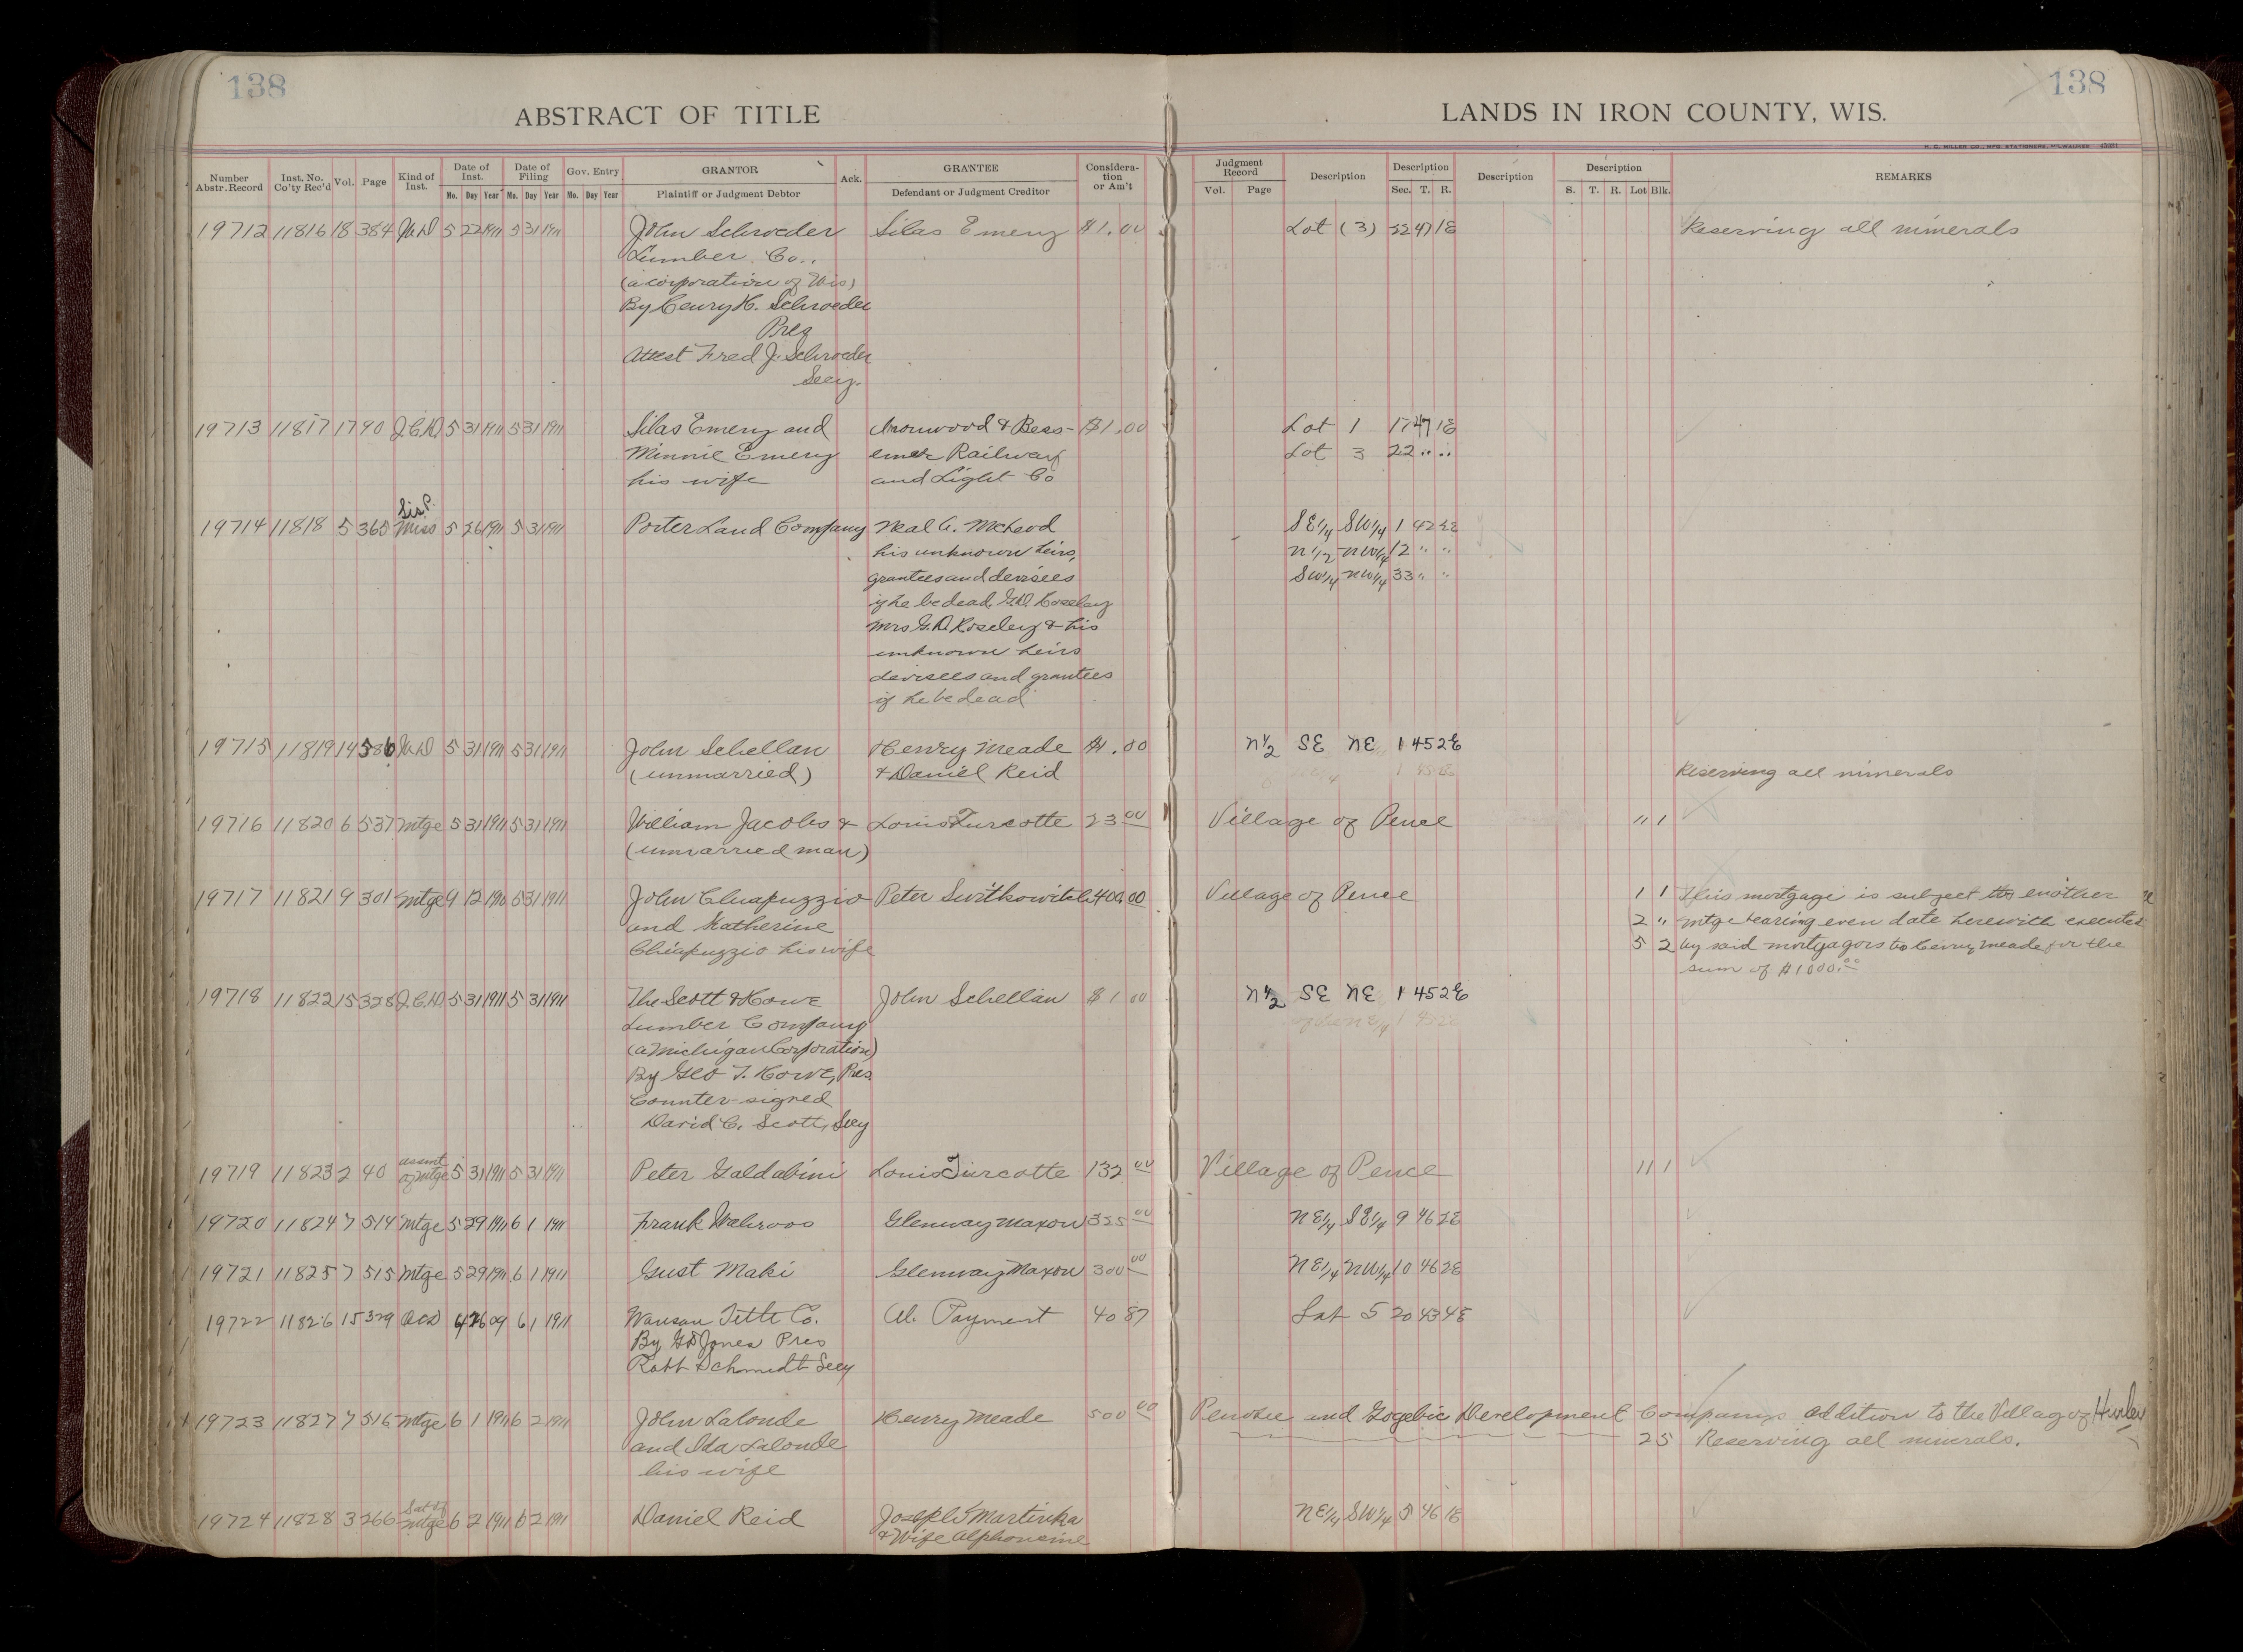 138
138
ABSTRACT OF TITLE
LANDS IN IRON COUNTY, WIS.
Number Abstr. Record Inst. No. Co'ty Rec'd Vol. Page Kind of Inst. Date of Inst. Mo. Day Year Date of Filing Mo. Day Year Gov. Entry Mo. Day Year GRANTOR Plaintiff or Judgment Debtor Ack. GRANTEE Defendant or Judgment Creditor Considera-tion or Am't
Judgment Record Vol. Page Description Description Sec. T. R. Description Description S. T. R. Lot Blk. REMARKS
19712 11816 18 384 WD 5 22 1911 5 31 1911 John Schroeder Silas Emery $1.00 Lot (3) 22 47 1E Reserving all minerals
Lumber Co.,
(a corporation of Wis)
By Henry H. Schroeder
Pres
Attest Fred J. Schroeder
Secy.
19713 11817 17 90 5 31 1911 5 31 1911 Silas Emery and Ironwood & Bess- $1.00 Lot 1 17 47 1E
Minnie Emery emer Railway Lot 3 22 " "
his wife and Light Co
Lis P.
19714 11818 5 365 5 26 1911 5 31 1911 Porter Land Company Neal A. McLeod SE1/4 SW1/4 1 42 2E
his unknown heirs, N1/2 NW1/4 12 " "
grantees and devisees SW1/4 NW1/4 33 " "
if he be dead, G.D. Koseley
Mrs G.D. Koseley & his
unknown heirs
devisees and grantees
if he be dead
19715 11819 14 586 WD 5 31 1911 5 31 1911 John Schellan Henry Meade $1.00 N1/2 SE NE 1 45 2E
(unmarried) & Daniel Reid Reserving all minerals
19716 11820 6 537 Mtge 5 31 1911 5 31 1911 William Jacobs & Louis Turcotte 23 00 Village of Pence 11 1
(unmarried man)
19717 11821 9 301 Mtge 9 12 1910 5 31 1911 John Chiapuzzio Peter Switkowitch 400.00 Village of Pence 1 1 This mortgage is subject to another
and Katherine 2 " mtge bearing even date herewith executed
Chiapuzzio his wife 5 2 by said mortgagors to Henry Meade for the
sum of $1000.00
19718 11822 15 328 5 31 1911 5 31 1911 The Scott & Howe John Schellan $1 00 N1/2 SE NE 1 45 2E
Lumber Company
(a Michigan Corporation)
By Geo T. Howe, Pres.
Counter-signed
David C. Scott, Secy
assmt
19719 11823 2 40 of mtge 5 31 1911 5 31 1911 Peter Galdabini Louis Turcotte 132 00 Village of Pence 11 1
19720 11824 7 514 Mtge 5 29 1911 6 1 1911 Frank Wahroos Glenway Maxon 325 00 NE1/4 SE1/4 9 46 2E
19721 11825 7 515 Mtge 5 29 1911 6 1 1911 Gust Maki Glenway Maxon 300 00 NE1/4 NW1/4 10 46 2E
19722 11826 15 329 09 6 1 1911 Wausau Title Co. Al. Payment 40 87 Lot 5 20 43 4E
By G D Jones Pres
Robt Schmidt Secy
19723 11827 7 516 Mtge 6 1 1911 6 2 1911 John Lalonde Henry Meade 500 00 Penokee and Gogebic Development Companys addition to the Village of Hurley
and Ida Lalonde 25 Reserving all minerals.
his wife
Sat of
19724 11828 3 266 mtge 6 2 1911 6 2 1911 Daniel Reid Joseph Martinka NE1/4 SW1/4 5 46 1E
& Wife Alphonsine